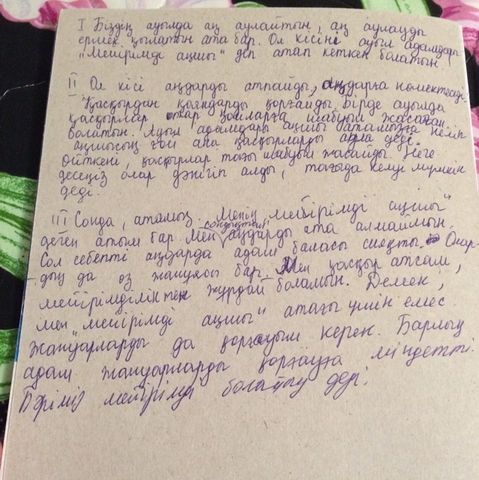 I Біздің ауылда аң аулайтын, аң аулауды
ермек қылатын ата бар. Ол кісіні ауыл адамдары
"Мейірімді аңшы" деп атап кеткен болатын.
II Ол кісі аңдарды атпайды, аңдарға көмектеседі.
Қасқырдан қояндарды қорғайды. Бірде ауылда
қасқырлар қойларға шабуыл жасаған
болатын. Ауыл адамдары аңшы атамызға келіп
аңшысың ғой ана қасқырларды атла деді.
Өйткені, қасқырлар тағы шабуыл жасайды. Неге
десеңіз олар дәнігіп алды, тағада келуі мүмкін
деді.
III Сонда, атамыз „Менің мейірімді аңшы"
деген атым бар. Мен сондықтан аңдарды ата алмаймын.
Сол себепті аңдарда адам баласы сияқты. Олар-
дың да өз жанұясы бар. Мен қасқыр атсам,
мейірімділіктен жұрдай боламын. Демек,
мен „мейірімді аңшы" атағы үшін емес
жануарларды да қорғауым керек. Барлық
адам жануарларды қорғауға міндетті.
Бәріміз мейірімді болайық деді.